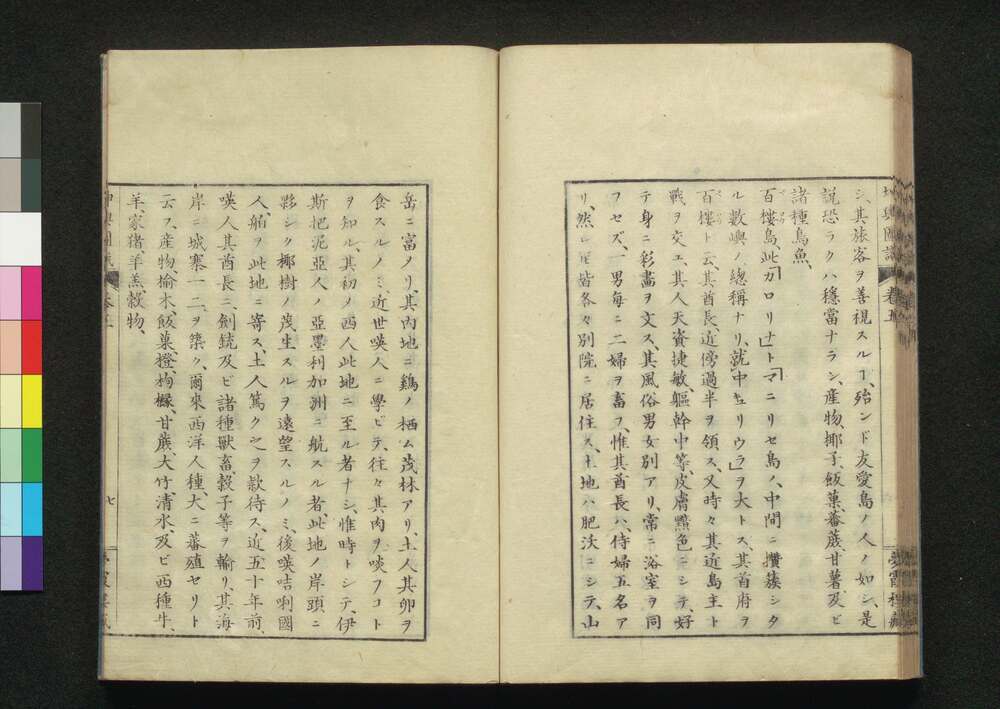 シ、其旅客ヲ善視スルヿ、殆ンド友愛島ノ人ノ如シ、是
説恐ラクハ穩當ナラン、産物、椰子、飯菓、蕃薎、甘薯、及ビ
諸種鳥魚、
百樓島、此「カロリナ」ト「マニリセ島ノ中間ニ攢簇シタ
ル數嶼ノ總稱ナリ、就中「キュリウラ」ヲ大トス、其首府ヲ
百樓ト云、其酋長、近傍過半ヲ領ス、又時々其近島主ト
戰ヲ交エ、其人天資捷敏、軀幹中等、皮膚黑色ニシテ、好
テ身ニ彩畫ヲ文ス、其風俗男女別アリ、常ニ浴室ヲ同
フセズ、一男每ニ二婦ヲ畜フ、惟其酋長ハ、侍婦五名ア
リ、然レ𪜈皆各々別院ニ居住ス、土地ハ肥沃ニシテ、山
岳ニ富メリ、其內地ニ鷄ノ栖ム茂林アリ、土人其卵ヲ
食スルノミ、近世暎人ニ學ビテ、往々其肉ヲ啖フコト
ヲ知ル、其初メ西人此地ニ至ル者ナシ、惟時トシテ、伊
斯把泥亞人ノ亞墨利加洲ニ航スル者、此地ノ岸頭ニ
夥シク椰樹ノ茂生スルヲ遠望スルノミ、後暎咭唎國
人、舶ヲ此地ニ寄ス、土人篤ク之ヲ欵待ス、近五十年前、
暎人其酋長ニ、劍銃及ビ諸種獸畜、穀子等ヲ輸リ、其海
岸ニ城寨一二ヲ築ク、爾來西洋人種、大ニ蕃殖セリト
云フ、産物、掄木、飯菓、橙、枸櫞、甘蔗、大竹、淸水、及ビ西種牛、
羊、家猪、羊羔、穀物、
七